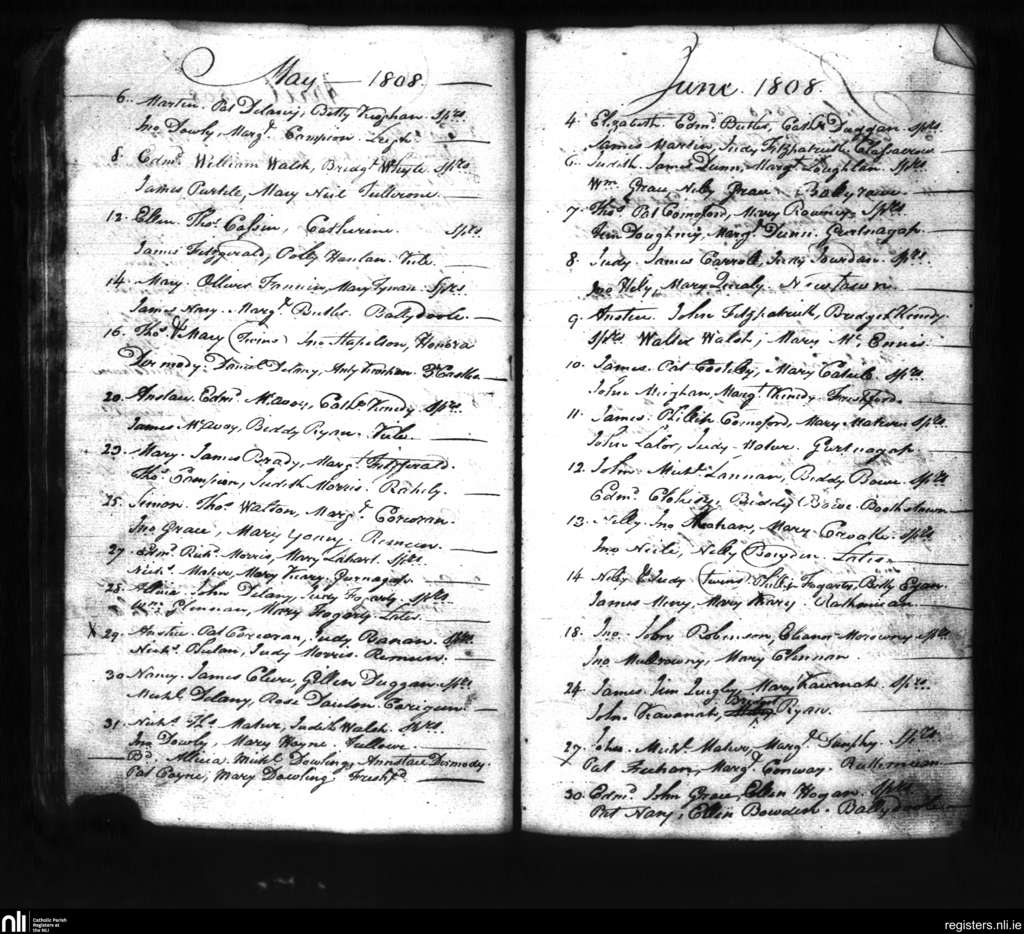 May — 1808.
6. Martin. Pat Delaney, Betty Vieghan. Sprs.
Jno Dowly, Margt. Campion. Leigh.
8. Edmd. William Walsh, Bridgt. Whyte. Sprs
James Purtle, Mary Neil Tulleroine.
12. Ellen. Thos. Cassin, Catherine. Sprs.
James Fitzgerald, Polly Hanlan. Tule.
14. Mary. Oliver Fannin, Mary Fynan. Sprs
James Nary. Margt. Butler. Ballydoole.
16. Thos. & Mary (Twins) Jno Stapelton, Honora
Dermody. Daniel Delany, 3 Castles.
20. Anstace. Edmd. McEvoy, Cathe. Kenedy. Sprs.
James McEvoy, Biddy Ryan. Tule.
23. Mary. James Brady, Margt. Fitzgerald.
Thos. Campion, Judith Morris. Rahely.
25. Simon. Thos. Walton, Margt. Corcoran.
Jno Grace, Mary Young. Remeen.
27. Richd. Morris, Mary Lahart. Sprs.
Nichs. Maher, Mary Geary. Gurnagap.
28. Allicia. John Delany, Judy Fogarty. Sprs
Wm. Glennan, Mary Fogarty. Lates.
X 29. Anstie. Pat Corcoran, Judy Ranan. Sprs
Nichs. Judy Morris. Remeen.
30. Nancy. James Cleere, Ellen Duggan. Sprs
Michl. Delany, Rose Dawlon. Corigeen.
31. Nichs. Thos. Maher, Judith Walsh. Sprs.
Jno Dowly, Mary Hayne. Tullowe.
Bd. Allicia. Michl. Dowling, Annstace Dermody.
Pat Payne, Mary Dowling. Freshfd.
June. 1808.
4. Elizabeth. Edmd. Butler, Cathe. Duggan. Sprs.
James Martin, Judy Fitzpatrick. Clasacrow
6. Judith. James Dunn, Margt. Loughlan. Sprs.
Wm. Grace, Nelly Grace. Ballyrowe.
7. Thos. Pat Comoford, Mary Rowney. Sprs.
Jim Doughney, Margt. Dunn. Gurtnagap.
8. Judy. James Carroll, Judy Jourdan. Sprs.
Jno Hely, Mary Newtown.
9. Anstice. John Fitzpatrick, Bridget Kenedy.
Sprs. Walter Walsh, Mary Mc. Ennis.
10. James. Pat Cooleby, Mary Sprs.
John Meighan, Margt. Kenedy. Freshford.
11. James. Philip Comoford, Mary Maher. Sprs.
John Lalor, Judy Maher. Gurtnagap.
12. John. Michl. Lannan, Biddy Bowe. Sprs.
Edmd. Clohesy, Biddy Bowe. Boothstown
13. Nelly. Jno Meahan, Mary Sprs.
Jno Neile, Nelly Bowden. Lates.
14. Nelly & Judy (Twins) Philip Fogarty, Betty Egan.
James Mary Rathonican.
18. Jno. John Robinson, Eleanor Sprs.
Jno Mulrowny, Mary Glennan.
24. James. Jim Quigly, Mary Kavanah. Sprs.
John Kavanah, Bridgt. Ryan.
27. John. Michl. Maher, Margt. Dunphy. Sprs.
X Pat Feehan, Margt. Conway.
30. Edmd. John Grace, Ellen Hogan. Sprs.
Pat Nary, Ellen Bowden. Ballydoole
nli Catholic Parish
Registers at
the NLI
registers.nli.ie